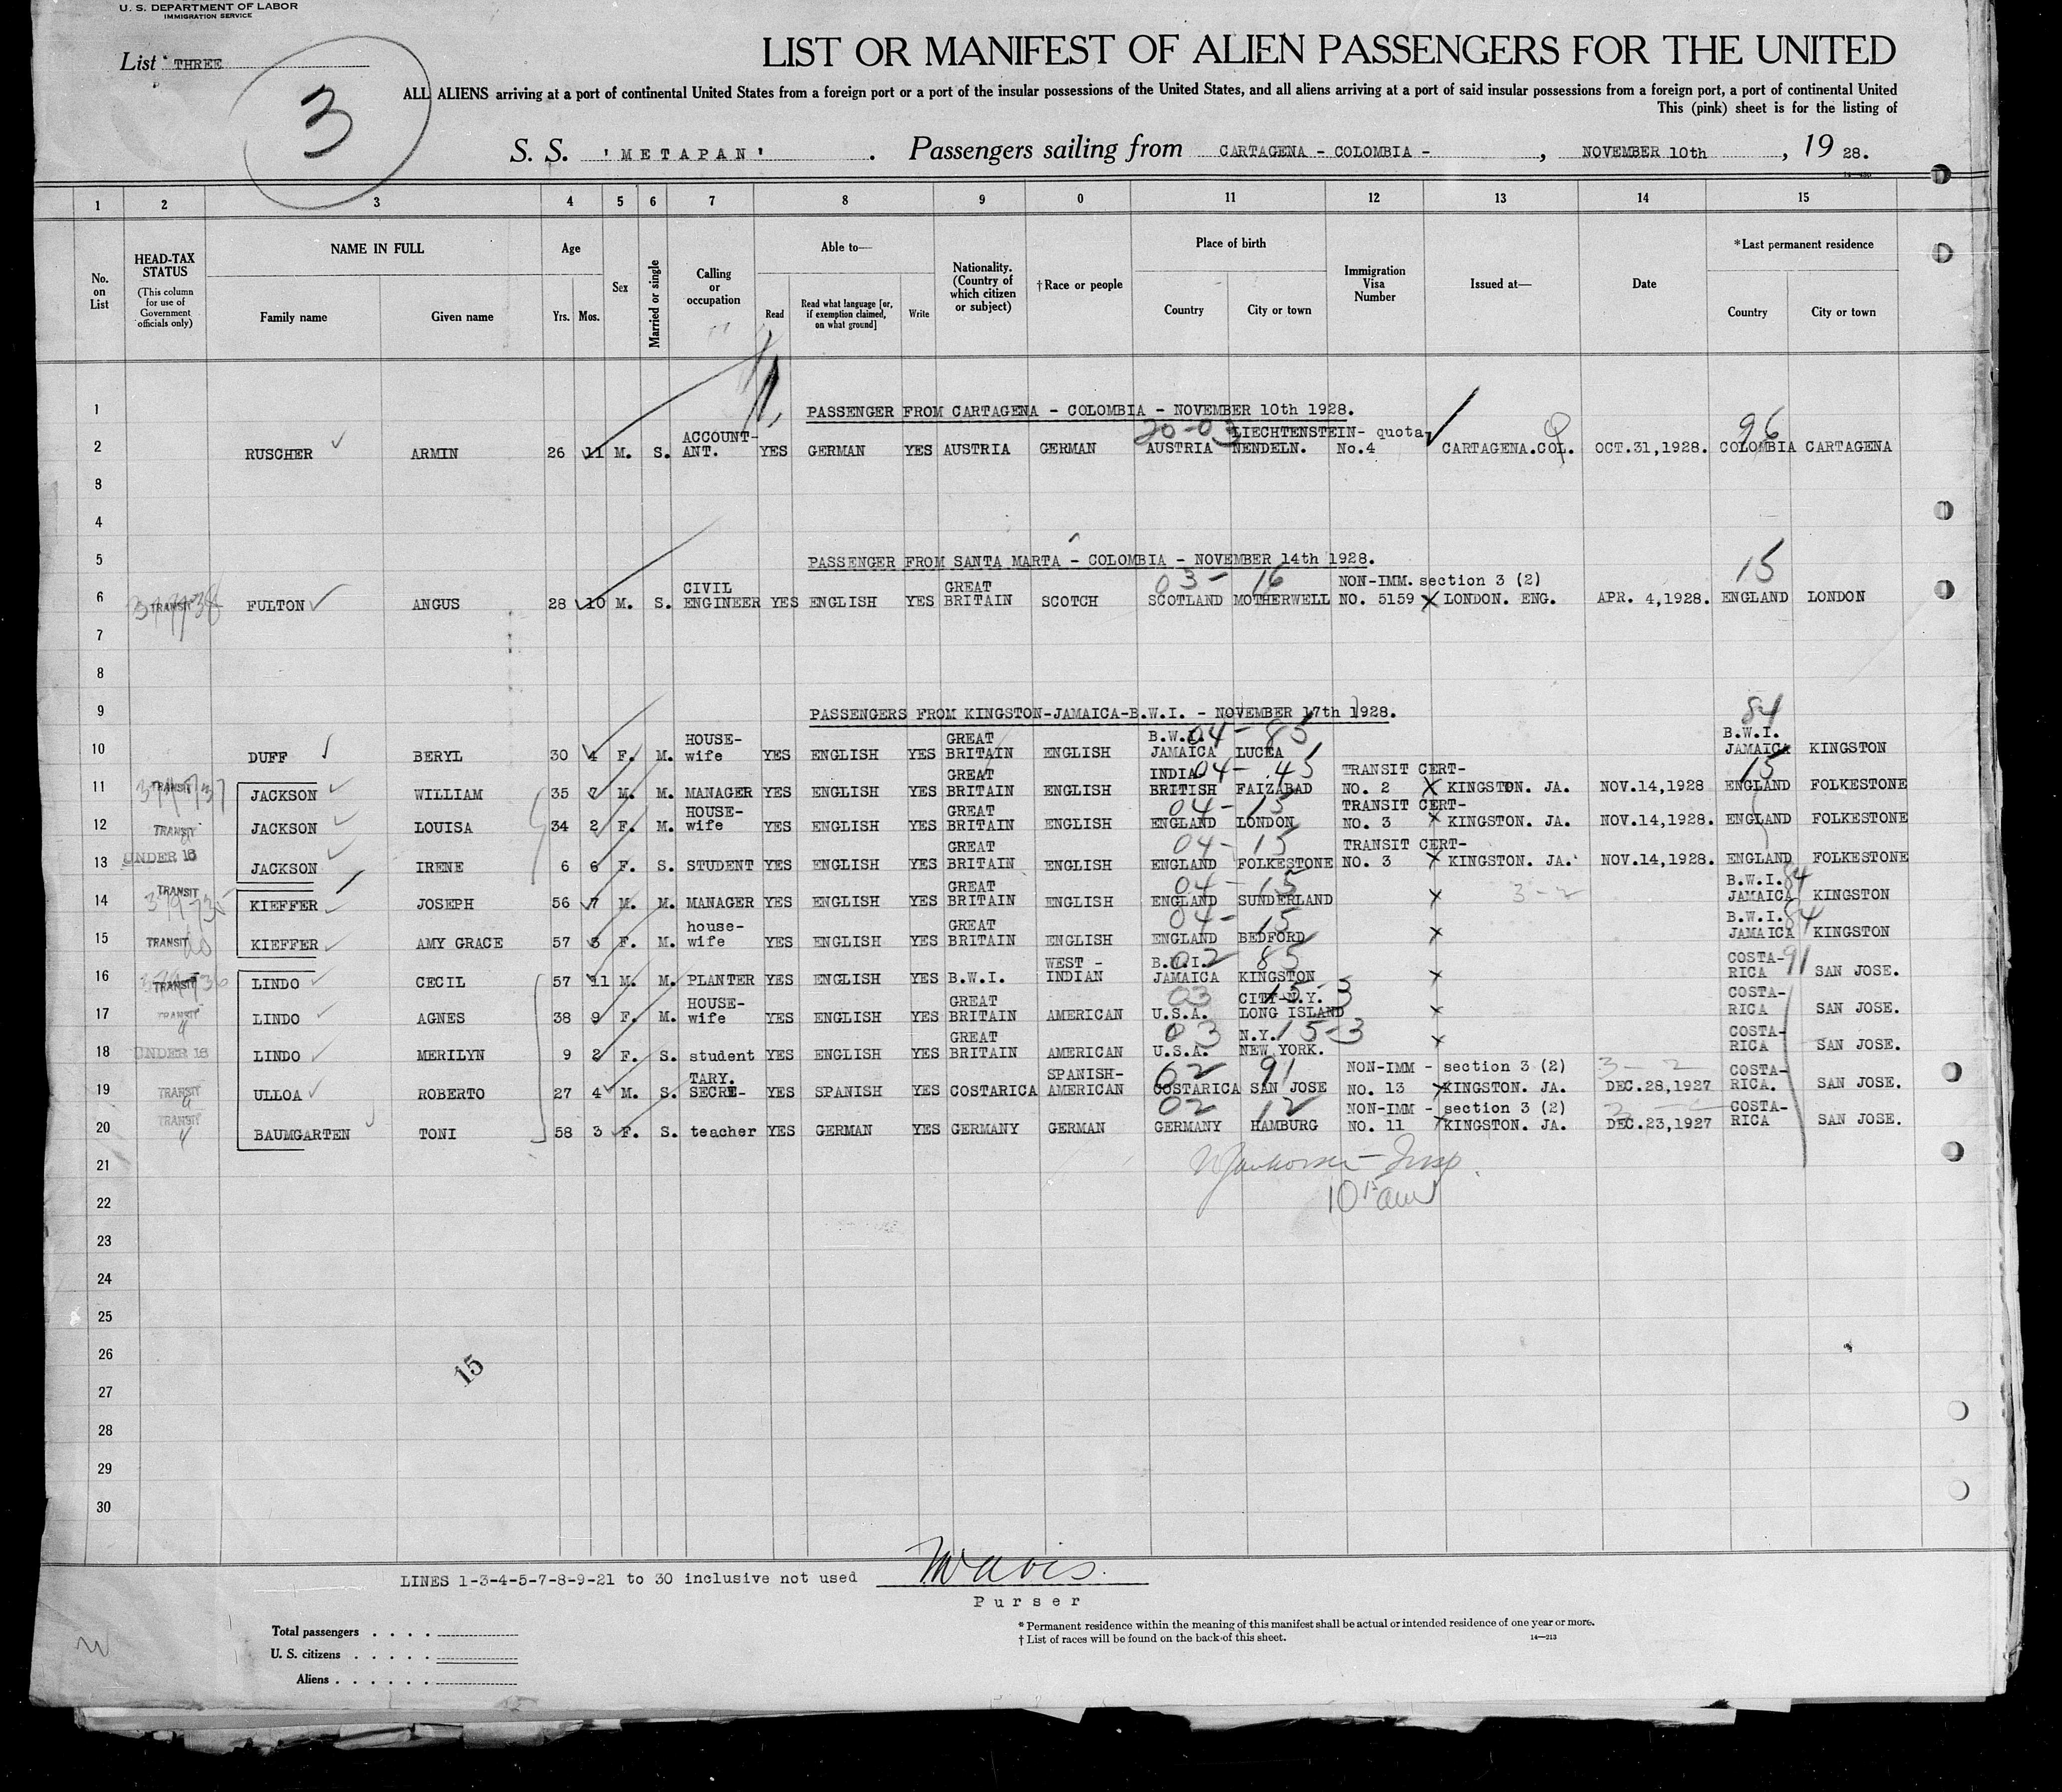 U. S. DEPARTMENT OF LABOR
IMMIGRATION SERVICE
List THREE
3
LIST OR MANIFEST OF ALIEN PASSENGERS FOR THE UNITED
ALL ALIENS arriving at a port of continental United States from a foreign port or a port of the insular possessions of the United States, and all aliens arriving at a port of said insular possessions from a foreign port, a port of continental United
This (pink) sheet is for the listing of
S. S. 'METAPAN' . Passengers sailing from CARTAGENA - COLOMBIA - , NOVEMBER 10th , 19 28.
1 2 3 4 5 6 7 8 9 0 11 12 13 14 15
No. on List
HEAD-TAX STATUS (This column for use of Government officials only)
NAME IN FULL
Family name Given name
Age
Yrs. Mos.
Sex
Married or single
Calling or occupation
Able to—
Read Read what language [or, if exemption claimed, on what ground] Write
Nationality. (Country of which citizen or subject)
†Race or people
Place of birth
Country City or town
Immigration Visa Number
Issued at—
Date
*Last permanent residence
Country City or town
1 PASSENGER FROM CARTAGENA - COLOMBIA - NOVEMBER 10th 1928.
2 RUSCHER ARMIN 26 11 M. S. ACCOUNT-ANT. YES GERMAN YES AUSTRIA GERMAN 20-03 AUSTRIA LIECHTENSTEIN- NENDELN. quota No.4 CARTAGENA.COL. OCT.31,1928. 96 COLOMBIA CARTAGENA
3
4
5 PASSENGER FROM SANTA MARTA - COLOMBIA - NOVEMBER 14th 1928.
6 TRANSIT FULTON ANGUS 28 10 M. S. CIVIL ENGINEER YES ENGLISH YES GREAT BRITAIN SCOTCH 03-16 SCOTLAND MOTHERWELL NON-IMM. section 3 (2) NO. 5159 LONDON. ENG. APR. 4,1928. 15 ENGLAND LONDON
7
8
9 PASSENGERS FROM KINGSTON-JAMAICA-B.W.I. - NOVEMBER 17th 1928.
10 DUFF BERYL 30 4 F. M. HOUSE-wife YES ENGLISH YES GREAT BRITAIN ENGLISH B.W.I. 04-85 JAMAICA LUCEA 84 B.W.I. JAMAICA KINGSTON
11 TRANSIT JACKSON WILLIAM 35 7 M. M. MANAGER YES ENGLISH YES GREAT BRITAIN ENGLISH INDIA 04-45 BRITISH FAIZABAD TRANSIT CERT- NO. 2 KINGSTON. JA. NOV.14,1928 15 ENGLAND FOLKESTONE
12 TRANSIT JACKSON LOUISA 34 2 F. M. HOUSE-wife YES ENGLISH YES GREAT BRITAIN ENGLISH 04-15 ENGLAND LONDON TRANSIT CERT- NO. 3 KINGSTON. JA. NOV.14,1928. ENGLAND FOLKESTONE
13 UNDER 16 JACKSON IRENE 6 6 F. S. STUDENT YES ENGLISH YES GREAT BRITAIN ENGLISH 04-15 ENGLAND FOLKESTONE TRANSIT CERT- NO. 3 KINGSTON. JA. NOV.14,1928. ENGLAND FOLKESTONE
14 TRANSIT KIEFFER JOSEPH 56 7 M. M. MANAGER YES ENGLISH YES GREAT BRITAIN ENGLISH 04-15 ENGLAND SUNDERLAND 3-2 B.W.I. 84 JAMAICA KINGSTON
15 TRANSIT KIEFFER AMY GRACE 57 3 F. M. house-wife YES ENGLISH YES GREAT BRITAIN ENGLISH 04-15 ENGLAND BEDFORD B.W.I. 84 JAMAICA KINGSTON
16 TRANSIT LINDO CECIL 57 11 M. M. PLANTER YES ENGLISH YES B.W.I. WEST - INDIAN B.W.I. 02 85 JAMAICA KINGSTON COSTA-RICA 91 SAN JOSE.
17 TRANSIT LINDO AGNES 38 9 F. M. HOUSE-wife YES ENGLISH YES GREAT BRITAIN AMERICAN 03 15-3 U.S.A. CITY N.Y. LONG ISLAND COSTA-RICA SAN JOSE.
18 UNDER 16 LINDO MERILYN 9 2 F. S. student YES ENGLISH YES GREAT BRITAIN AMERICAN 03 15-3 U.S.A. N.Y. NEW YORK. COSTA-RICA SAN JOSE.
19 TRANSIT ULLOA ROBERTO 27 4 M. S. TARY. SECRE- YES SPANISH YES COSTARICA SPANISH-AMERICAN 02 91 COSTARICA SAN JOSE NON-IMM - section 3 (2) NO. 13 KINGSTON. JA. 3-2 DEC.28,1927 COSTA-RICA. SAN JOSE.
20 TRANSIT BAUMGARTEN TONI 58 3 F. S. teacher YES GERMAN YES GERMANY GERMAN 02 12 GERMANY HAMBURG NON-IMM - section 3 (2) NO. 11 KINGSTON. JA. DEC.23,1927 COSTA-RICA SAN JOSE.
21
22
23
24
25
26
27 15
28
29
30
LINES 1-3-4-5-7-8-9-21 to 30 inclusive not used
Purser
Total passengers . . . .
U. S. citizens . . . . .
Aliens . . . . . .
* Permanent residence within the meaning of this manifest shall be actual or intended residence of one year or more.
† List of races will be found on the back of this sheet.
14—213